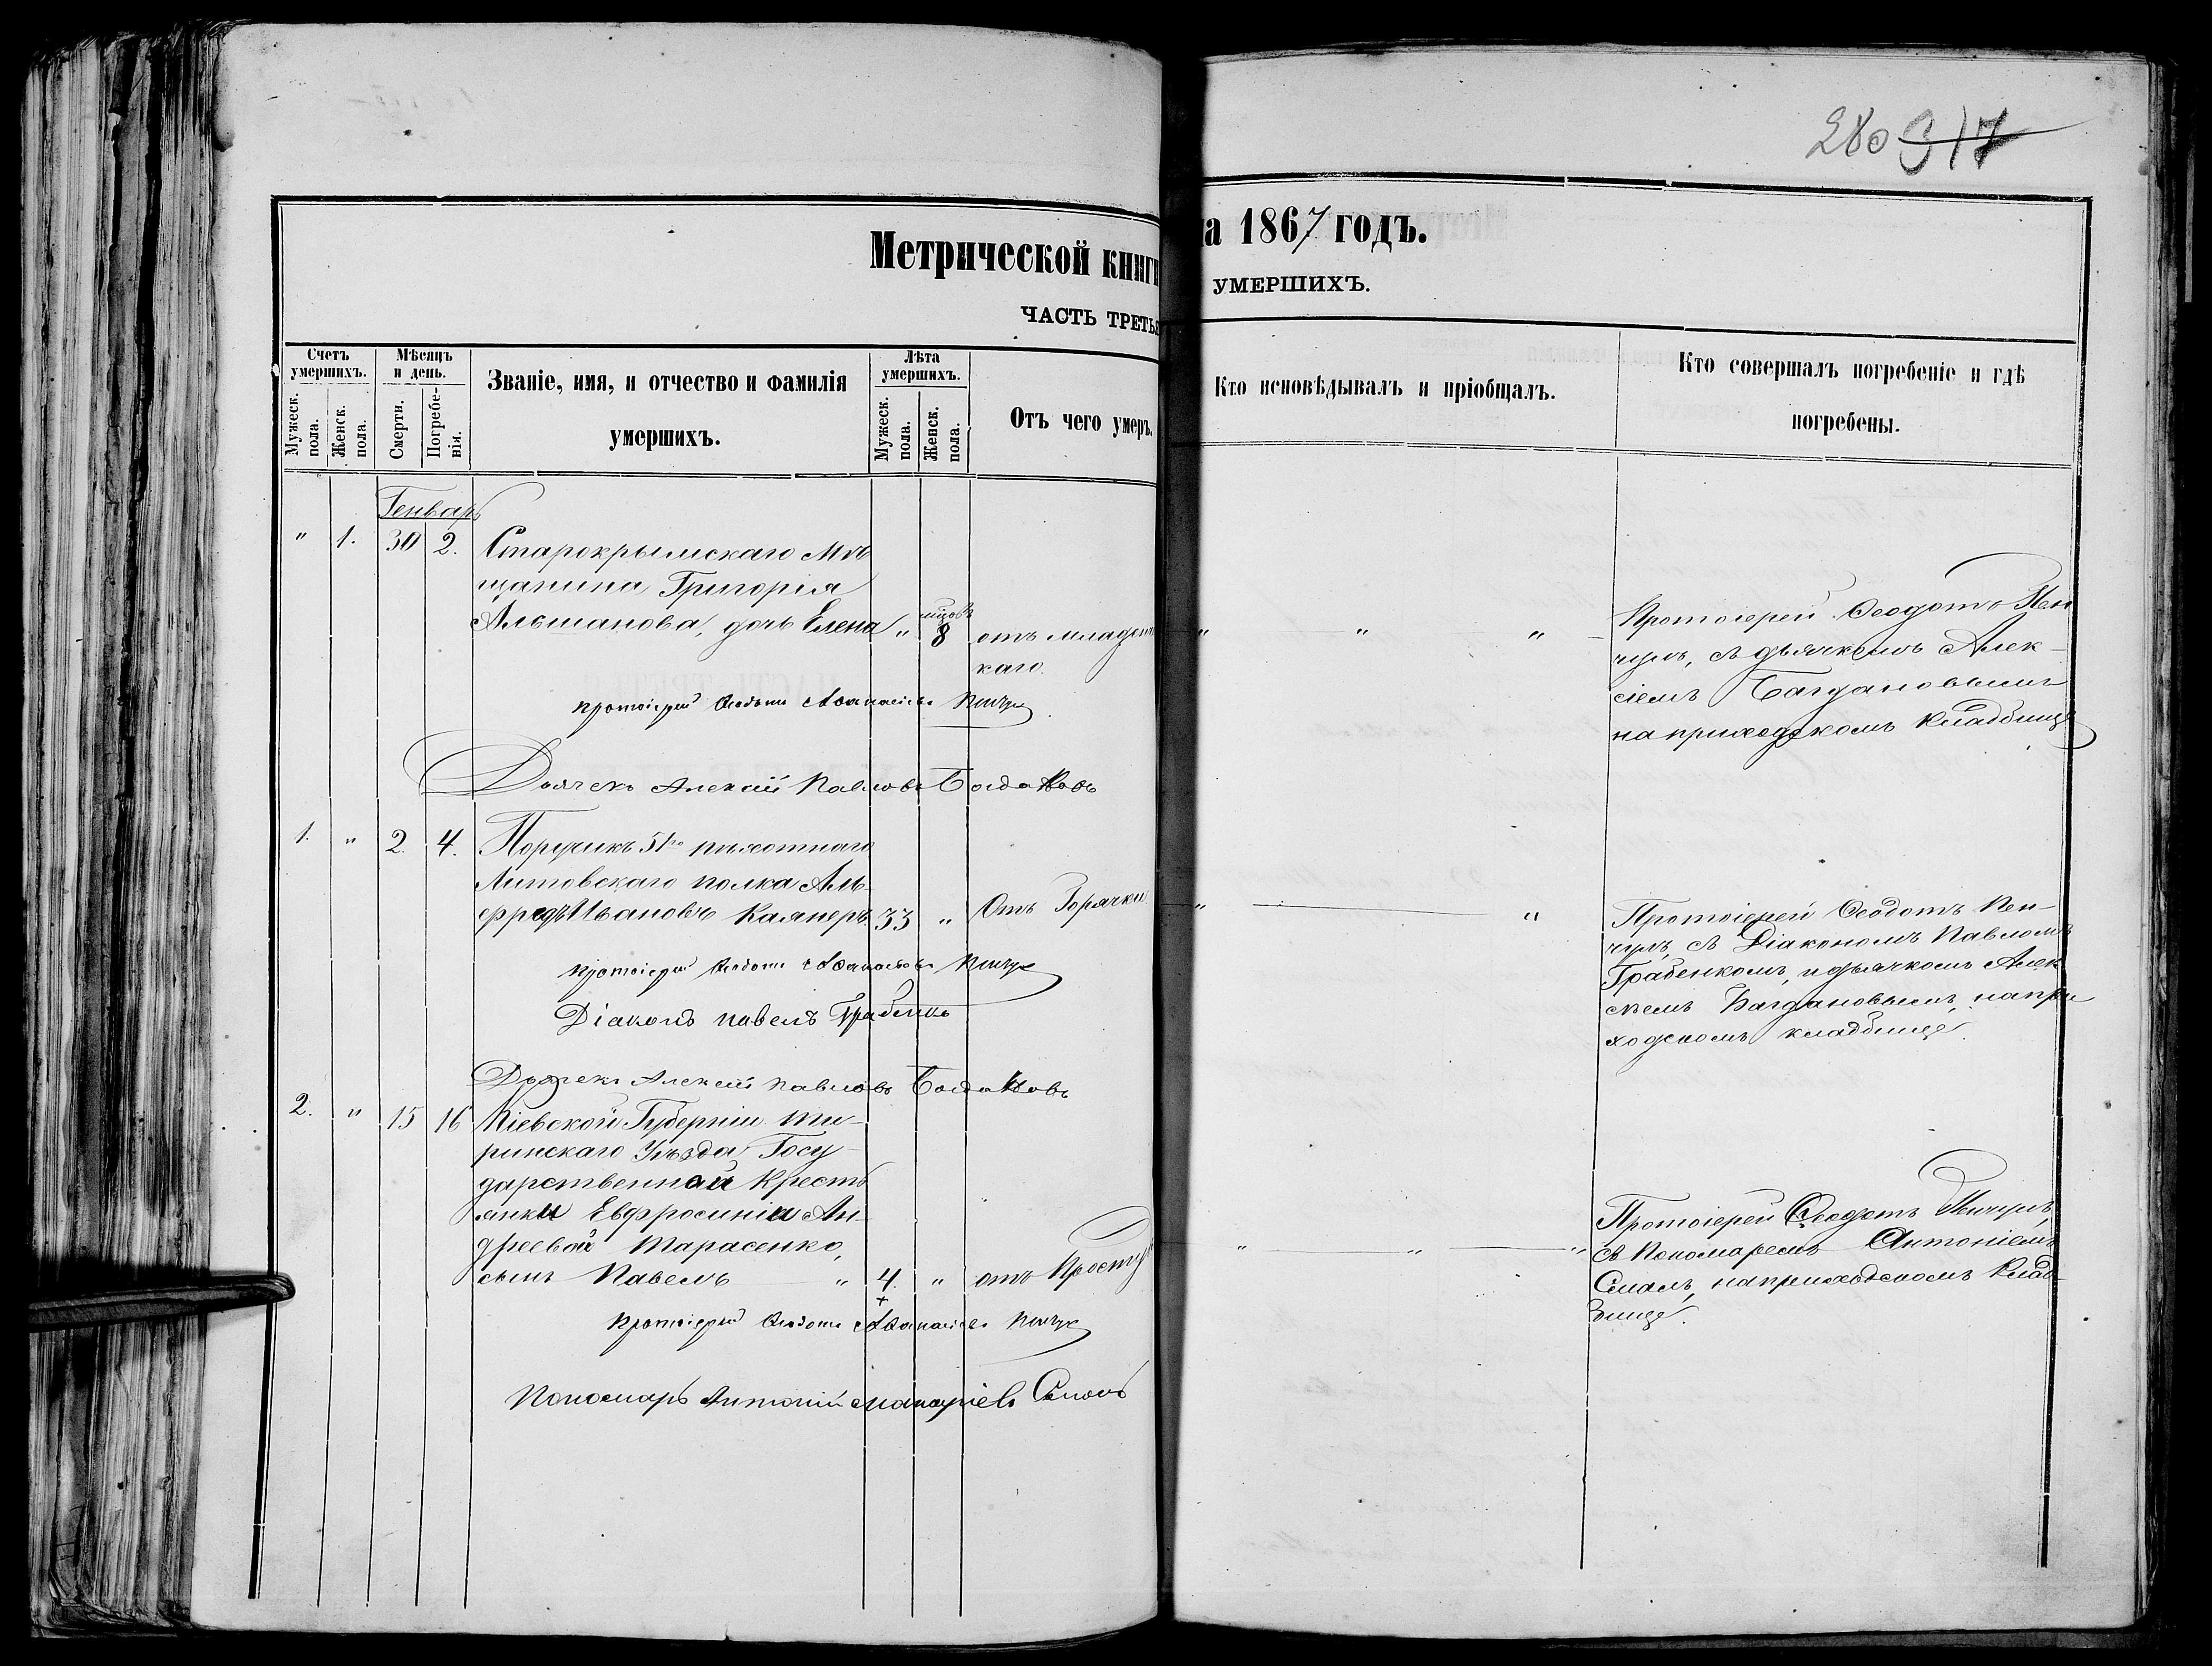 280 317
Метрической книги
на 1867 годъ.
ЧАСТЬ ТРЕТЬЯ
УМЕРШИХЪ.
Счетъ умершихъ.
Мужеск. пола.
Женск. пола.
Мѣсяцъ и день.
Смерти.
Погребенія.
Званіе, имя, и отчество и фамилія
умершихъ.
Лѣта умершихъ.
Мужеск. пола.
Женск. пола.
Отъ чего умеръ.
Кто исповѣдывалъ и пріобщалъ.
Кто совершалъ погребеніе и гдѣ
погребены.
Генварь
" 1. 30 2. Старокрымскаго Мѣ
щанина Григорія
Альшанова, дочь Елена " 8 отъ младен
каго.
Протоіерей Ѳеодотъ Пен
чулъ, съ дьячкомъ Алек-
сіемъ Багдановымъ
на приходскомъ кладбище
протоіерей Ѳеодотъ Аѳанасіевъ
Дьячекъ Алексій Павловъ Богдановъ
1. " 2. 4. Поручикъ 51го пѣхотнаго
Литовскаго полка Аль-
фредъ Ивановъ Кампнеръ 33 " Отъ Горячки
Протоіерей Ѳеодотъ Пен-
чулъ, съ Діакономъ Павломъ
Грабенкомъ, и дьячкомъ Алек
сѣемъ Багдановымъ, на при
ходскомъ кладбище.
протоіерей Ѳеодотъ Аѳанасьевъ
Діаконъ павелъ Грабенко
Дьячекъ Алексей Павловъ Богдановъ
2. " 15 16 Кіевской Губерніи
Уѣзда Госу-
дарственной Кресть
янки Евфросиніи Ан-
дреевой Тарасенко,
сынъ Павелъ " 4. " отъ Просту
Протоіерей Ѳеодотъ Пенчулъ,
съ Пономаремъ Антоніемъ
на приходскомъ клад-
бище.
протоіерей Ѳеодотъ Аѳанасіевъ
Пономарь Антоній